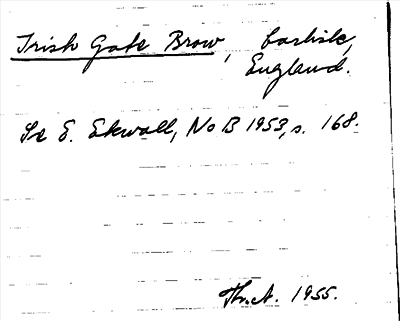 Irish Gate Brow, Carlisle,
England.
Se E. Ekwall, NoB 1953, s. 168.
Th.A. 1955.